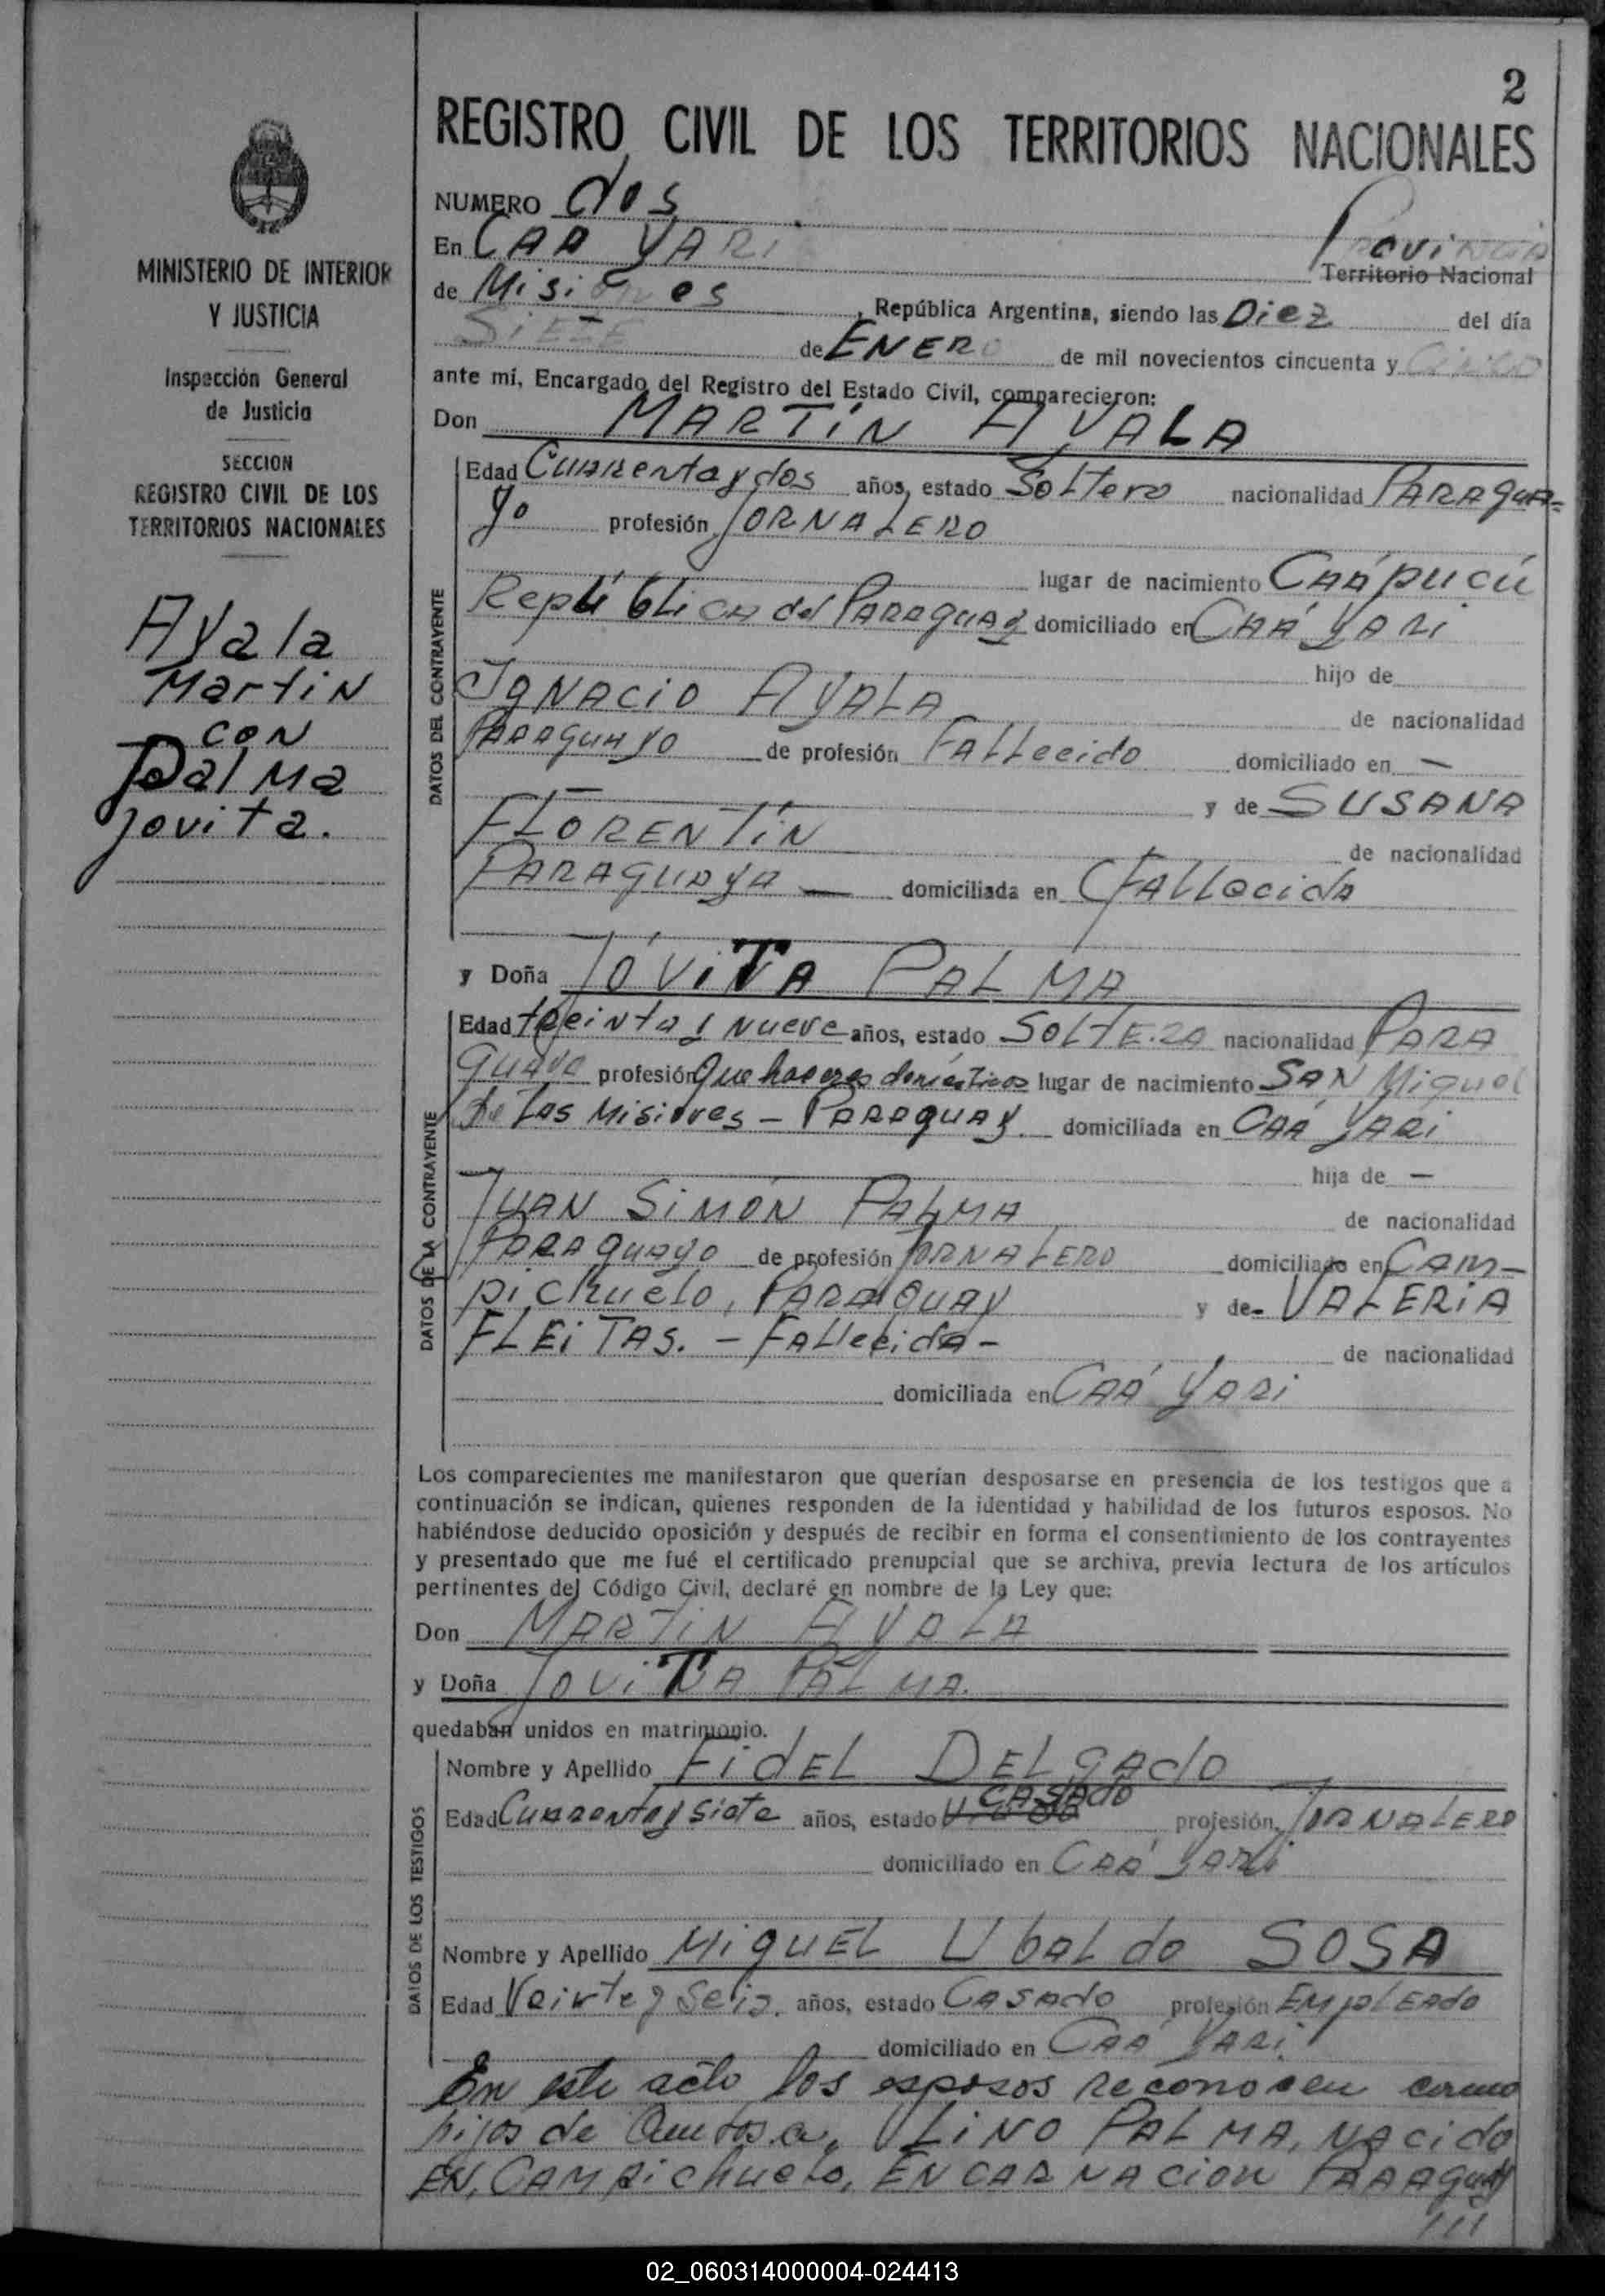 2
REGISTRO CIVIL DE LOS TERRITORIOS NACIONALES
MINISTERIO DE INTERIOR
Y JUSTICIA
Inspección General
de Justicia
SECCION
REGISTRO CIVIL DE LOS
TERRITORIOS NACIONALES
Ayala
Martin
con
Palma
Jovita.
NUMERO dos
En CAA YARI Provincia
Territorio Nacional
de Misiones, República Argentina, siendo las Diez del día
SIETE de ENERO de mil novecientos cincuenta y CINCO
ante mí, Encargado del Registro del Estado Civil, comparecieron:
Don MARTIN AYALA
DATOS DEL CONTRAYENTE
Edad Cuarenta y dos años, estado Soltero nacionalidad PARAGUA=
yo profesión JORNALERO
lugar de nacimiento CAÁPUCÚ
República del PARAGUAY domiciliado en CAÁ YARI
hijo de
IGNACIO AYALA de nacionalidad
PARAGUAYO de profesión FALLecido domiciliado en —
y de SUSANA
FLORENTÍN de nacionalidad
PARAGUAYA — domiciliada en FALLecida
y Doña JOVITA PALMA
DATOS DE LA CONTRAYENTE
Edad treinta y nueve años, estado SOLTERA nacionalidad PARA
GUAYA profesión Quehaceres domésticos lugar de nacimiento SAN Miguel
de Las Misiones - PARAGUAY. domiciliada en CAÁ YARI
hija de —
JUAN SIMÓN PALMA de nacionalidad
PARAGUAYO de profesión JORNALERO domiciliado en CAM-
pichuelo, PARAGUAY y de VALERIA
FLEITAS. - Fallecida - de nacionalidad
domiciliada en CAÁ YARI
Los comparecientes me manifestaron que querían desposarse en presencia de los testigos que a
continuación se indican, quienes responden de la identidad y habilidad de los futuros esposos. No
habiéndose deducido oposición y después de recibir en forma el consentimiento de los contrayentes
y presentado que me fué el certificado prenupcial que se archiva, previa lectura de los artículos
pertinentes del Código Civil, declaré en nombre de la Ley que:
Don MARTIN AYALA
y Doña JOVITA PALMA.
quedaban unidos en matrimonio.
DATOS DE LOS TESTIGOS
Nombre y Apellido FIDEL DELGADO
Edad Cuarenta y siete años, estado CASADO profesión JORNALERO
domiciliado en CAÁ YARI
Nombre y Apellido MIGUEL UbaLdo SOSA
Edad Veinte y seis. años, estado CASADO profesión EMPLEADO
domiciliado en CAÁ YARI
En este acto los esposos reconocen como
hijos de LINO PALMA, NACIDO
EN, CAMPICHUELO, ENCARNACION PARAGUAY
///
02_060314000004-024413